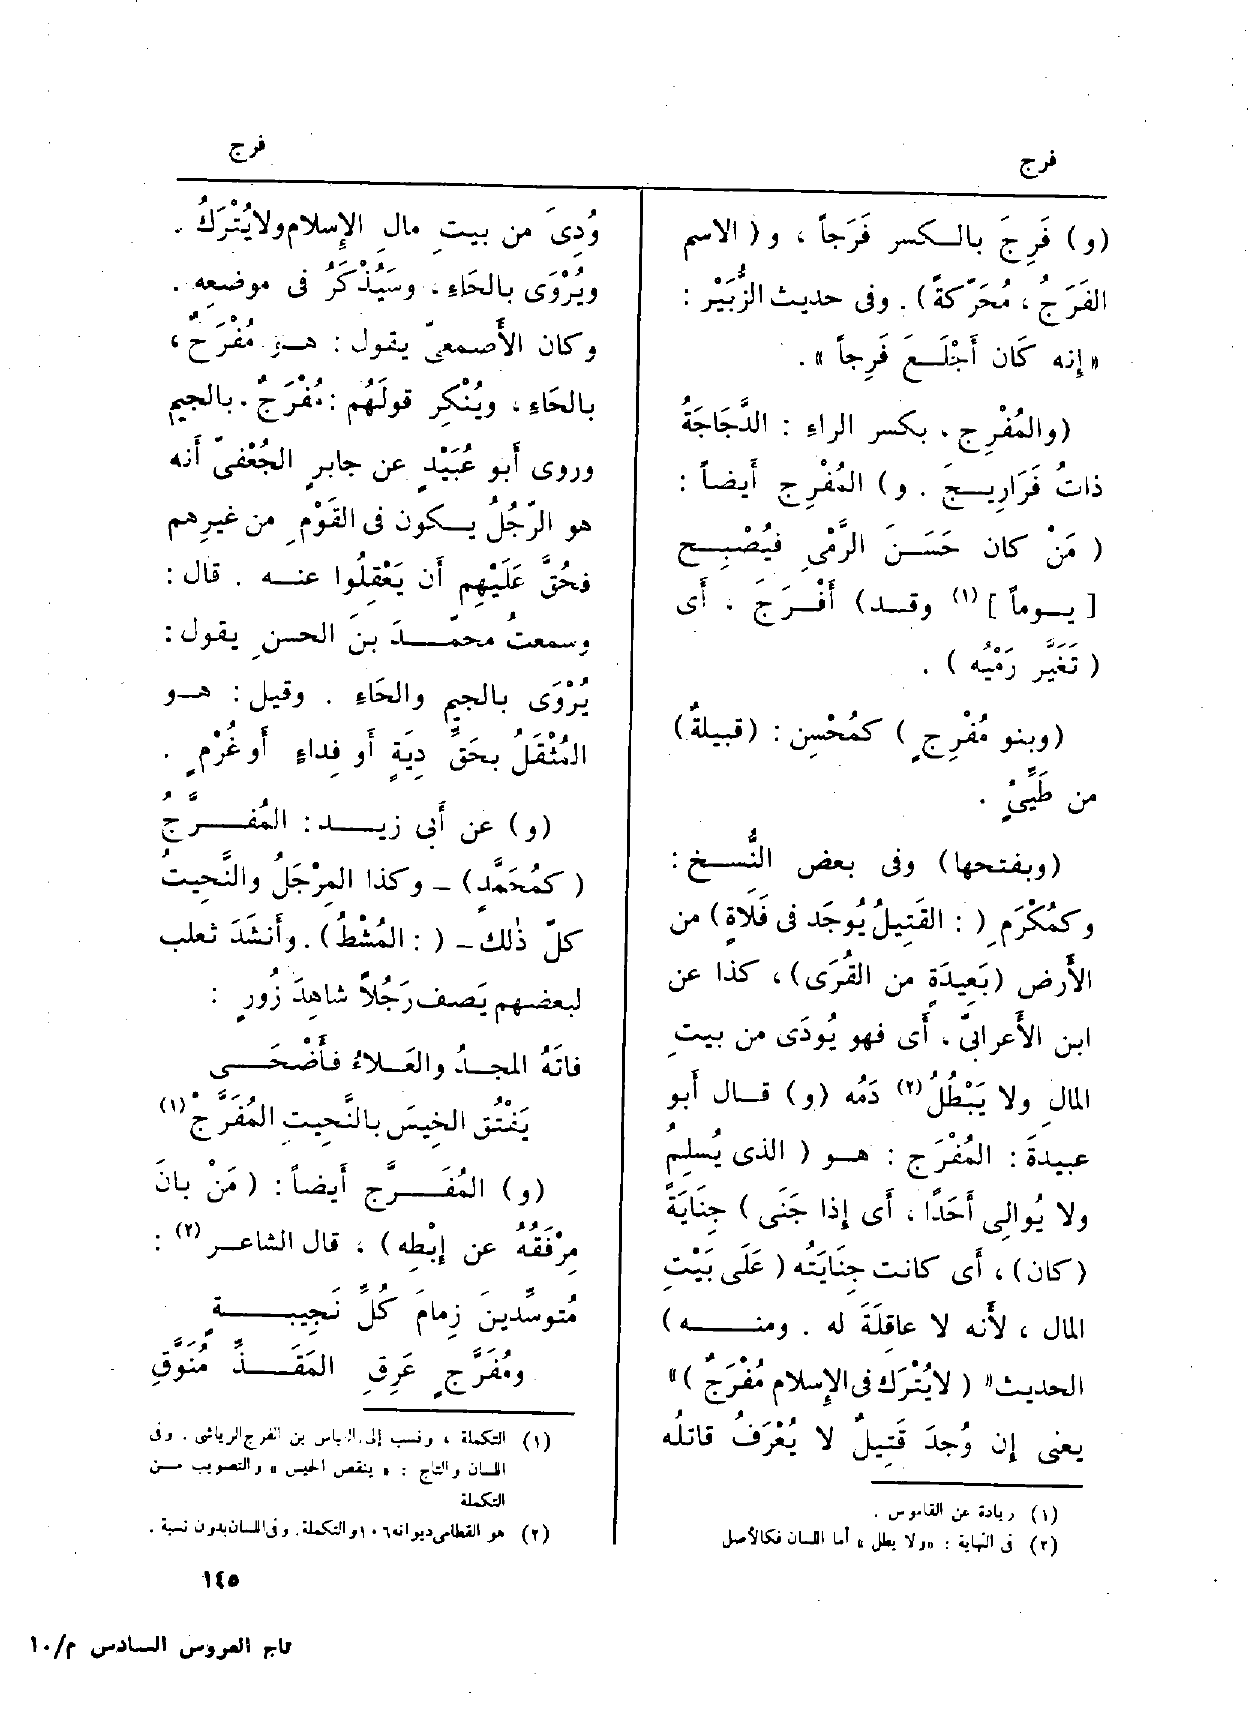 فرج
(و) فَرِجَ بالكسر فَرَجاً، و(الاسم
الفَرَجُ، مُحَرّكةً). وفى حديث الزُّبَيْر:
«إنه كَان أَجْلَعَ فَرِجاً».
(والمُفْرِج، بكسر الراءِ: الدَّجَاجَةُ
ذاتُ فَرَارِيجَ. و) المُفْرِج أيضاً:
(مَنْ كان حَسَنَ الرَّمْىِ فيُصْبِح
[يوماً](١) وقد) أَفْرَجَ. أَى
(تَغَيَّر رَمْيُه).
(وبنو مُفْرِجٍ) كمُحْسِن: (قبيلةٌ)
من طَيِّئٍ.
(وبفتحها) وفى بعض النُّسخ:
وكمُكْرَمٍ (: القَتِيلُ يُوجَد فى فَلَاةٍ) من
الأَرض (بَعِيدَةٍ من القُرَى)، كذا عن
ابن الأَعرابىّ، أَى فهو يُودَى من بيتِ
المالِ ولا يَبْطُلُ(٢) دَمُه (و) قال أَبو
عبيدةَ: المُفْرَج: هو (الذى يُسلِمُ
ولا يُوالِى أَحَدًا، أَى إذا جَنَى) جِنَايَةً
(كان)، أَى كانت جِنَايَتُه (عَلَى بَيْتِ
المال، لأَنه لا عاقِلَةَ له. ومنه)
الحديث« (لا يُتْرَك فى الإسلام مُفْرَجٌ)»
يعنى إن وُجدَ قَتِيلٌ لا يُعْرَفُ قاتلُه
(١) زيادة عن القاموس.
(٢) فى النهاية: «ولا يطل» أما اللسان فكالأصل
فرج
وُدِىَ من بيتِ مالِ الإسلام ولا يُتْرَكُ.
ويُرْوَى بالحَاءِ، وسَيُذْكَرُ فى موضعِه.
وكان الأَصمعىّ يقول: هو مُفْرَحٌ،
بالحَاءِ، ويُنْكِر قولَهُم: مُفْرَجٌ. بالجيم
وروى أَبو عُبَيْدٍ عن جابرٍ الجُعْفىّ أَنه
هو الرّجُلُ يكون فى القَوْمِ من غيرِهم
فحُقَّ عَلَيْهِم أَن يَعْقِلُوا عنه. قال:
وسمعتُ محمّدَ بنَ الحسنِ يقول:
يُرْوَى بالجيمِ والحَاءِ. وقيل: هو
المُثْقَلُ بحَقِّ دِيَةٍ أَو فِداءٍ أَو غُرْمٍ.
(و) عن أَبى زيد: المُفَرَّجُ
(كمُحَمَّدٍ) - وكذا المِرْجَلُ والنَّحِيتُ
كلّ ذٰلك - (: المُشْطُ). وأَنشَدَ ثعلب
لبعضهم يَصف رَجُلاً شاهِدَ زُورٍ:
فاتَهُ المجدُ والعَلاءُ فأَضْحَى
يَفْتُق الخِيسَ بالنَّحِيتِ المُفَرَّجْ(١)
(و) المُفَرَّج أَيضاً: (مَنْ بانَ
مِرْفَقُهُ عن إبْطِه)، قال الشاعر(٢):
مُتوسِّدينَ زِمامَ كُلِّ نَجِيبةٍ
ومُفَرَّجٍ عَرِقِ المَقَذِّ مُنَوَّقِ
(١) التكملة، ونسب إلى العباس بن الفرج الرياشى. وفى
اللسان والتاج: «ينقص الخيس» والتصويب من
التكملة
(٢) هو القطامى ديوانه ١٠٦ والتكملة. وفى اللسان بدون نسبة.
١٤٥
تاج العروس السادس م/١٠